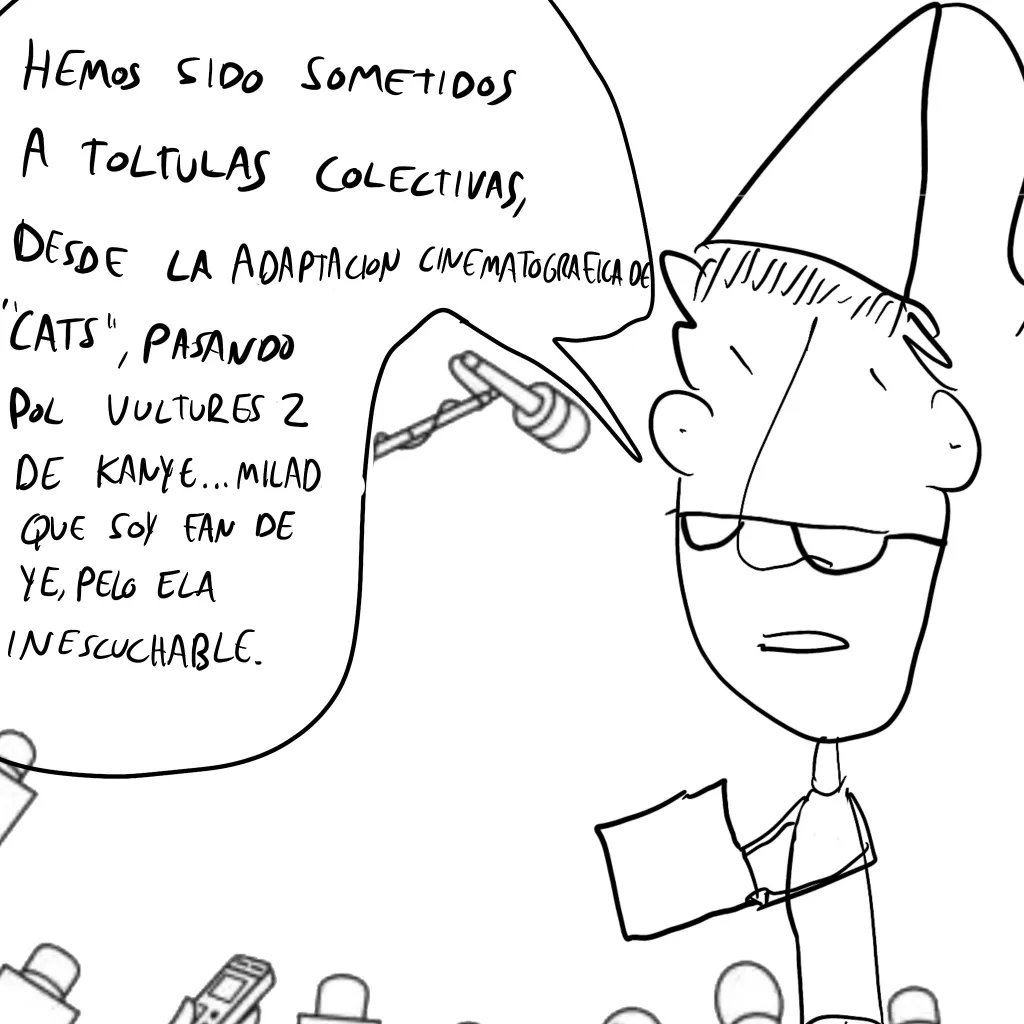 HEMOS SIDO SOMETIDOS
A TOLTULAS COLECTIVAS,
DESDE LA ADAPTACION CINEMATOGRAFICA DE
"CATS", PASANDO
POL VULTURES 2
DE KANYE...MILAD
QUE SOY FAN DE
YE, PELO ELA
INESCUCHABLE.